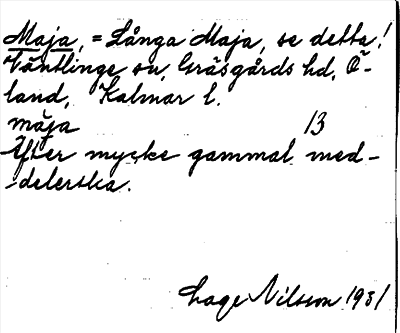 Maja, = Långa Maja, se detta!
Ventlinge sn, Gräsgårds hd, Ö-
land, Kalmar l.
măja 13
Efter mycke gammal med-
delerska.
Lage Nilsson 1931